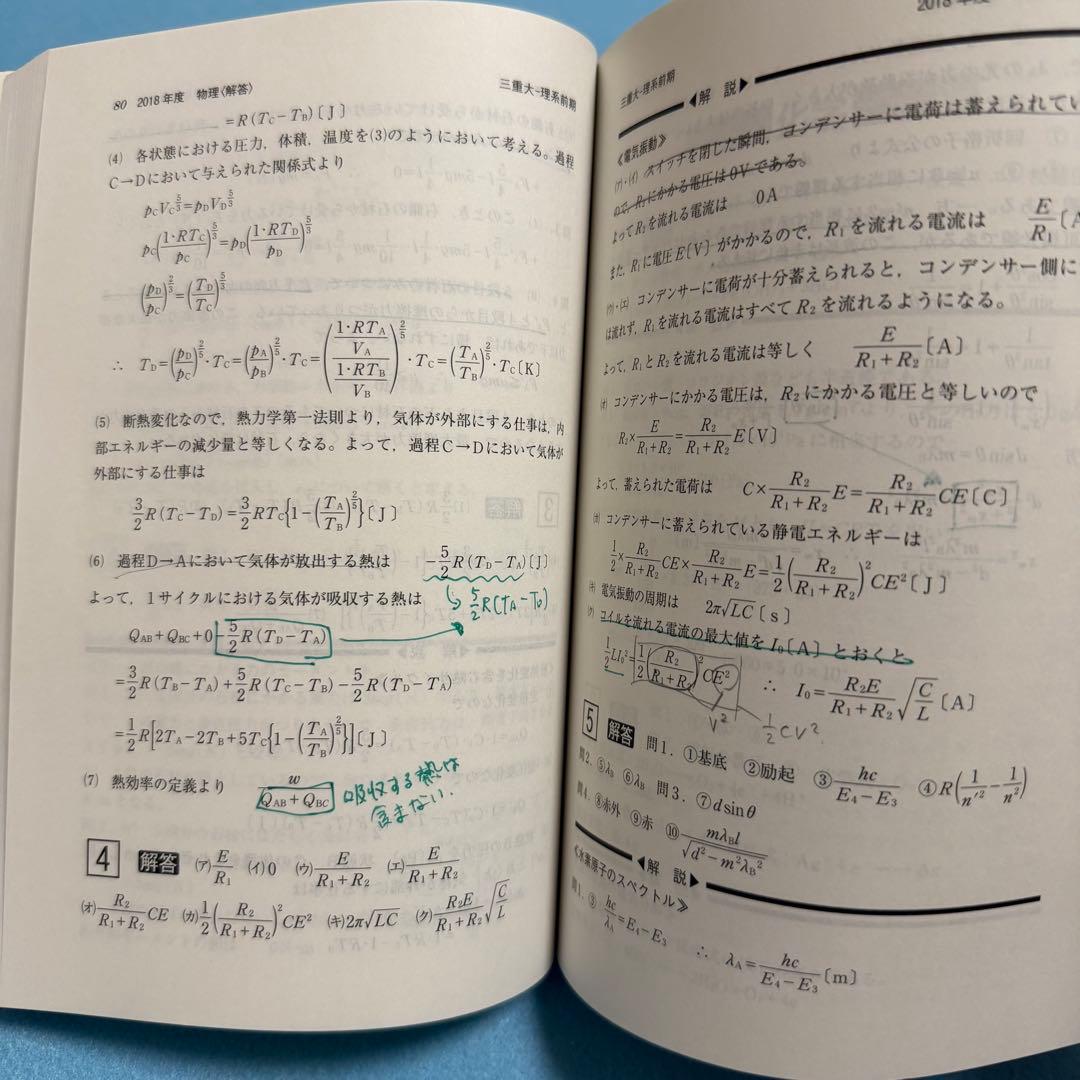 80 2018年度 物理〈解答〉 三重大-理系前期
=R(T_C−T_B)〔J〕
(4) 各状態における圧力，体積，温度を(3)のようにおいて考える。過程
C→Dにおいて与えられた関係式より
p_C V_C^{5/3}=p_D V_D^{5/3}
p_C(1·RT_C/p_C)^{5/3}=p_D(1·RT_D/p_D)^{5/3}
(p_D/p_C)^{2/3}=(T_D/T_C)^{5/3}
∴ T_D=(p_D/p_C)^{2/5}·T_C=(p_A/p_B)^{2/5}·T_C=((1·RT_A/V_A)/(1·RT_B/V_B))^{2/5}·T_C=(T_A/T_B)^{2/5}·T_C〔K〕
(5) 断熱変化なので，熱力学第一法則より，気体が外部にする仕事は，内
部エネルギーの減少量と等しくなる。よって，過程C→Dにおいて気体が
外部にする仕事は
3/2 R(T_C−T_D)=3/2 RT_C{1−(T_A/T_B)^{2/5}}〔J〕
(6) 過程D→Aにおいて気体が放出する熱は −5/2 R(T_D−T_A)〔J〕
↳ 5/2 R(T_A−T_D)
よって，1サイクルにおける気体が吸収する熱は
Q_AB+Q_BC+0−5/2 R(T_D−T_A)
=3/2 R(T_B−T_A)+5/2 R(T_C−T_B)−5/2 R(T_D−T_A)
=1/2 R[2T_A−2T_B+5T_C{1−(T_A/T_B)^{2/5}}]〔J〕
(7) 熱効率の定義より w/(Q_AB+Q_BC) 吸収する熱は
含まない.
4 解答 (ア)E/R_1 (イ)0 (ウ)E/(R_1+R_2) (エ)E/(R_1+R_2)
(オ)R_2/(R_1+R_2) CE (カ)1/2(R_2/(R_1+R_2))^2 CE^2 (キ)2π√LC (ク)R_2E/(R_1+R_2) √(C/L)
2018年度
三重大-理系前期
◀解 説▶
≪電気振動≫
(ア)・(イ) スイッチを閉じた瞬間，コンデンサーに電荷は蓄えられてい
ので，R_2にかかる電圧は0Vである。
よってR_2を流れる電流は 0A
また，R_1に電圧E〔V〕がかかるので，R_1を流れる電流は E/R_1〔A
(ウ)・(エ) コンデンサーに電荷が十分蓄えられると，コンデンサー側に
は流れず，R_1を流れる電流はすべてR_2を流れるようになる。
よって，R_1とR_2を流れる電流は等しく E/(R_1+R_2)〔A〕
(オ) コンデンサーにかかる電圧は，R_2にかかる電圧と等しいので
R_2×E/(R_1+R_2)=R_2/(R_1+R_2) E〔V〕
よって，蓄えられた電荷は C×R_2/(R_1+R_2) E=R_2/(R_1+R_2) CE〔C〕
(カ) コンデンサーに蓄えられている静電エネルギーは
1/2×R_2/(R_1+R_2) CE×R_2/(R_1+R_2) E=1/2(R_2/(R_1+R_2))^2 CE^2〔J〕
(キ) 電気振動の周期は 2π√LC〔s〕
(ク) コイルを流れる電流の最大値をI_0〔A〕とおくと
1/2 LI_0^2=1/2(R_2/(R_1+R_2))^2 CE^2 ∴ I_0=R_2E/(R_1+R_2) √(C/L)〔A〕
V^2 1/2 CV^2.
5 解答 問1．①基底 ②励起 ③hc/(E_4−E_3) ④R(1/n'^2−1/n^2)
問2．⑤λ_B ⑥λ_B 問3．⑦d sinθ
問4．⑧赤外 ⑨赤 ⑩mλ_B l/√(d^2−m^2λ_B^2)
◀解 説▶
≪水素原子のスペクトル≫
問1．③ hc/λ_A=E_4−E_3 ∴ λ_A=hc/(E_4−E_3)〔m〕